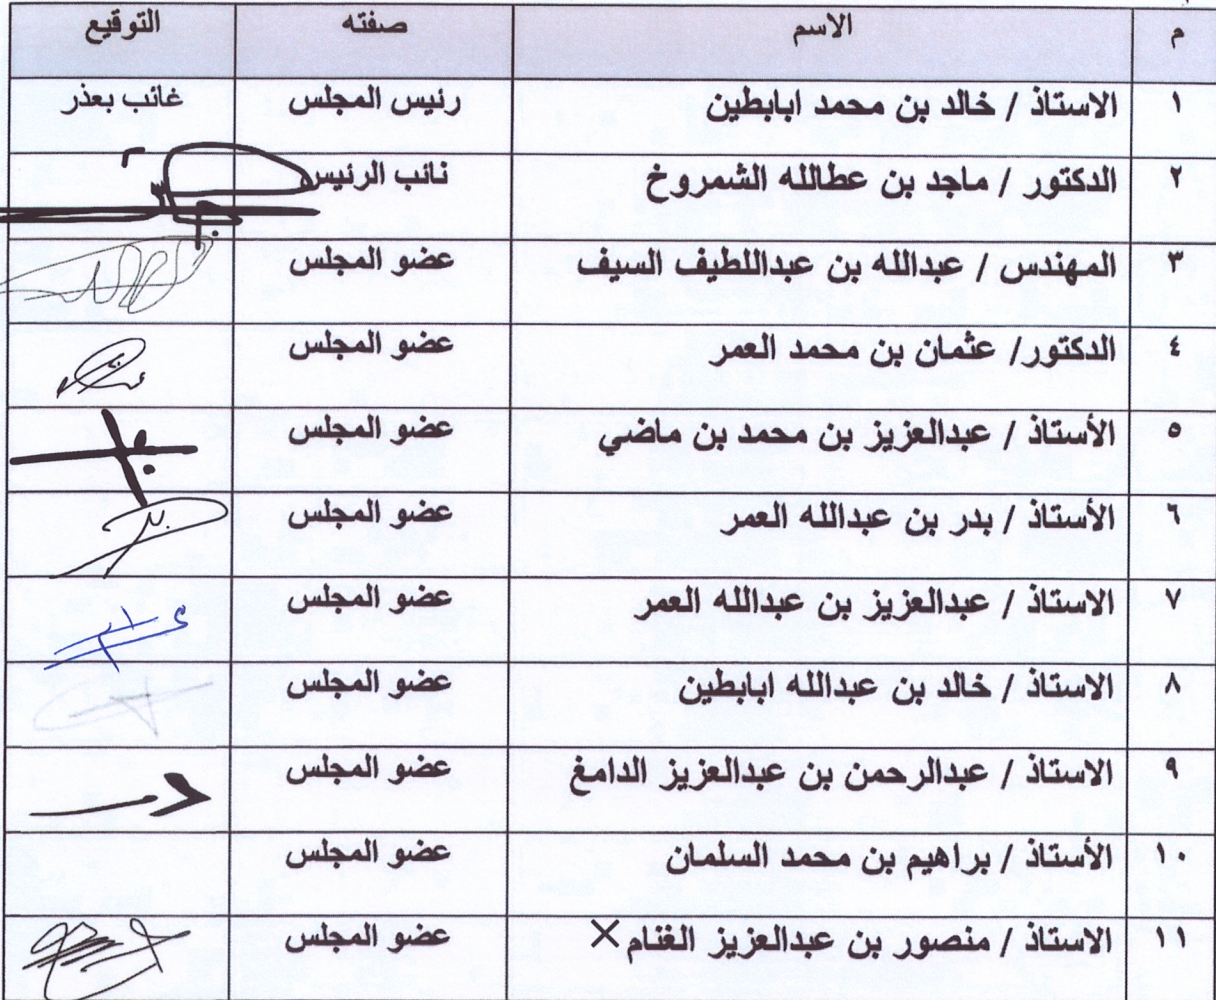 م الاسم صفته التوقيع
١ الاستاذ / خالد بن محمد ابابطين رئيس المجلس غائب بعذر
٢ الدكتور / ماجد بن عطالله الشمروخ نائب الرئيس
٣ المهندس / عبدالله بن عبداللطيف السيف عضو المجلس
٤ الدكتور/ عثمان بن محمد العمر عضو المجلس
٥ الأستاذ / عبدالعزيز بن محمد بن ماضي عضو المجلس
٦ الأستاذ / بدر بن عبدالله العمر عضو المجلس
٧ الاستاذ / عبدالعزيز بن عبدالله العمر عضو المجلس
٨ الاستاذ / خالد بن عبدالله ابابطين عضو المجلس
٩ الاستاذ / عبدالرحمن بن عبدالعزيز الدامغ عضو المجلس
١٠ الأستاذ / براهيم بن محمد السلمان عضو المجلس
١١ الاستاذ / منصور بن عبدالعزيز الغنام× عضو المجلس